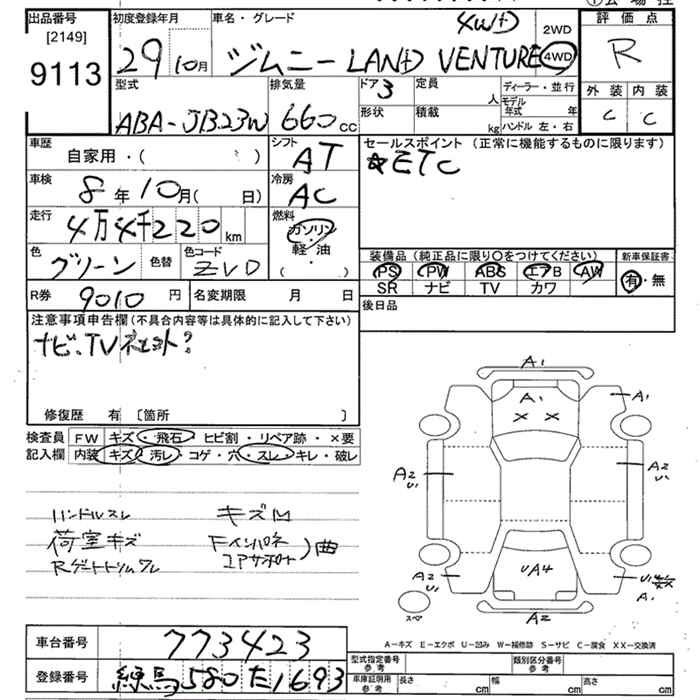 出品番号
[2149]
9113
初度登録年月
29 10月
車名・グレード
4WD
ジムニー LAND VENTURE
2WD
4WD
評価点
R
外装 内装
C C
型式
ABA-JB23W
排気量
660 CC
ドア 3
形状
定員 人
積載 kg
ディーラー・並行
モデル年式 年
ハンドル 左・右
車歴
自家用・( )
シフト
AT
セールスポイント (正常に機能するものに限ります)
★ETC
車検
8年10月( 日)
冷房
AC
走行
4万4千220 km
燃料
ガソリン
軽・油
( )
色
グリーン
色替
色コード
ZVD
装備品 (純正品に限り○をつけてください)
PS PW ABS エアB AW
SR ナビ TV カワ
新車保証書
有・無
R券 9010 円
名変期限 月 日
後日品
注意事項申告欄 (不具合内容等は具体的に記入して下さい)
ナビ、TV
修復歴 有 [箇所 ]
検査員
記入欄
FW キズ・飛石・ヒビ割・リペア跡・×要
内装 キズ・汚レ・コゲ・穴・スレ・キレ・破レ
ハンドルスレ
荷室キズ
キズM
Fインパネ
コアサポート
曲
A1
A1
× ×
A1
A2
U1
A2
U1
A2
U1
UA4
U1
A1
A2
スペ
A-キズ E-エクボ U-凹み W-補修跡 S-サビ C-腐食 XX-交換済
車台番号 773423
登録番号 練馬580た1693
型式指定番号
参考
類別区分番号
参考
車庫証明用
参考
長さ cm
幅 cm
高さ cm